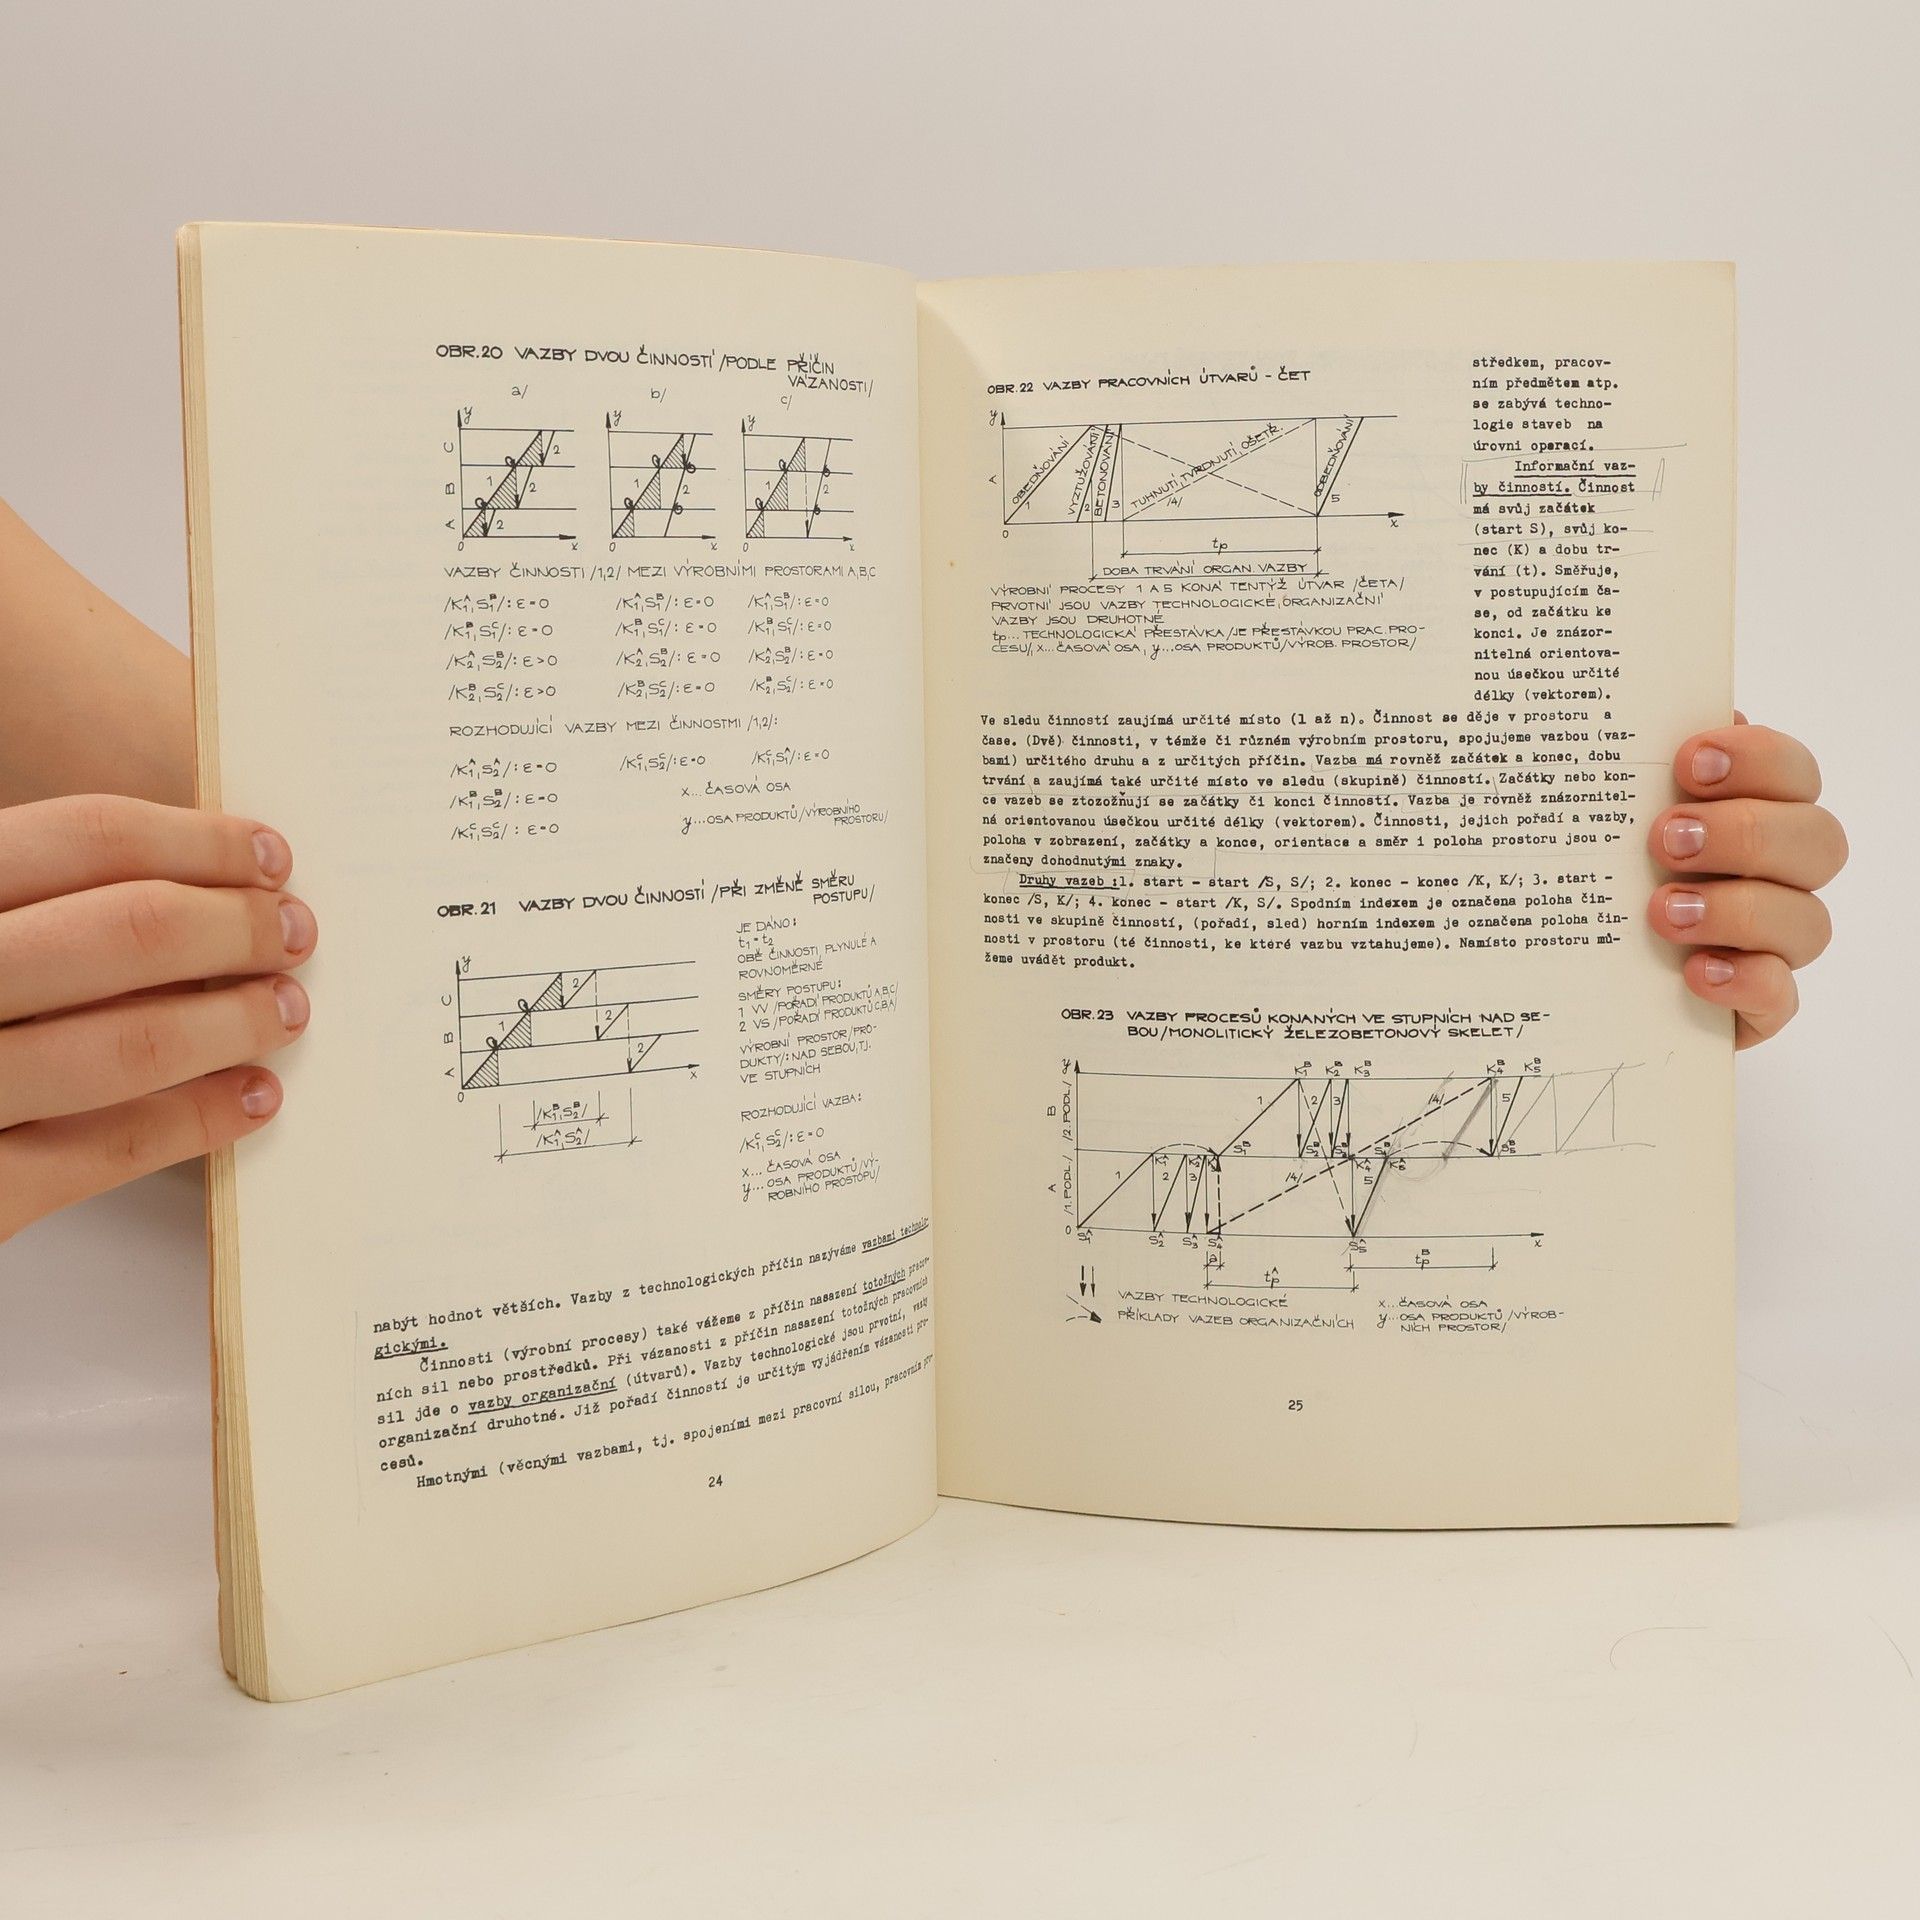 OBR.20 VAZBY DVOU ČINNOSTÍ /PODLE PŘÍČIN
VÁZANOSTI/
a/ b/ c/
y y y
C
B
A
1 2 2 2
1 2
1 2
0 x 0 x 0 x
VAZBY ČINNOSTI /1,2/ MEZI VÝROBNÍMI PROSTORAMI A,B,C
/K₁ᴬ,S₁ᴮ/: ε=0 /K₁ᴬ,S₁ᴮ/: ε=0 /K₁ᴬ,S₁ᴮ/: ε=0
/K₁ᴮ,S₁ᶜ/: ε=0 /K₁ᴮ,S₁ᶜ/: ε=0 /K₁ᴮ,S₁ᶜ/: ε=0
/K₂ᴬ,S₂ᴮ/: ε>0 /K₂ᴬ,S₂ᴮ/: ε=0 /K₂ᴬ,S₂ᴮ/: ε=0
/K₂ᴮ,S₂ᶜ/: ε>0 /K₂ᴮ,S₂ᶜ/: ε=0 /K₂ᴮ,S₂ᶜ/: ε=0
ROZHODUJÍCÍ VAZBY MEZI ČINNOSTMI /1,2/:
/K₁ᴬ,S₂ᴬ/: ε=0 /K₁ᶜ,S₂ᶜ/: ε=0 /K₁ᶜ,S₁ᴬ/: ε=0
/K₁ᴮ,S₂ᴮ/: ε=0
/K₁ᶜ,S₂ᶜ/: ε=0
x...ČASOVÁ OSA
y...OSA PRODUKTŮ /VÝROBNÍHO
PROSTORU/
OBR.21 VAZBY DVOU ČINNOSTÍ /PŘI ZMĚNĚ SMĚRU
POSTUPU/
y
C
B
A
1 2 2 2
0 x
/K₁ᴮ,S₂ᴮ/
/K₁ᴬ,S₂ᴬ/
JE DÁNO:
t₁=t₂
OBĚ ČINNOSTI PLYNULÉ A
ROVNOMĚRNÉ
SMĚRY POSTUPU:
1 VV /POŘADÍ PRODUKTŮ A,B,C/
2 VS /POŘADÍ PRODUKTŮ C,B,A/
VÝROBNÍ PROSTOR /PRO-
DUKTY/: NAD SEBOU, TJ.
VE STUPNÍCH
ROZHODUJÍCÍ VAZBA:
/K₁ᶜ,S₂ᶜ/: ε=0
x... ČASOVÁ OSA
y... OSA PRODUKTŮ /VÝ-
ROBNÍHO PROSTORU/
nabýt hodnot větších. Vazby z technologických příčin nazýváme vazbami technolo-
gickými.
Činnosti (výrobní procesy) také vážeme z příčin nasazení totožných pracov-
ních sil nebo prostředků. Při vázanosti z příčin nasazení totožných pracovních
sil jde o vazby organizační (útvarů). Vazby technologické jsou prvotní, vazby
organizační druhotné. Již pořadí činností je určitým vyjádřením vázanosti pro-
cesů.
Hmotnými (věcnými vazbami, tj. spojeními mezi pracovní silou, pracovním pro-
24
OBR.22 VAZBY PRACOVNÍCH ÚTVARŮ - ČET
y
A
OBEDŇOVÁNÍ
1
VYZTUŽOVÁNÍ
2
BETONOVÁNÍ
3
TUHNUTÍ, TVRDNUTÍ, OŠETŘ.
/4/
ODBEDŇOVÁNÍ
5
0 x
tp
DOBA TRVÁNÍ ORGAN. VAZBY
VÝROBNÍ PROCESY 1 A 5 KONÁ TENTÝŽ ÚTVAR /ČETA/
PRVOTNÍ JSOU VAZBY TECHNOLOGICKÉ, ORGANIZAČNÍ
VAZBY JSOU DRUHOTNÉ
tp... TECHNOLOGICKÁ PŘESTÁVKA /JE PŘESTÁVKOU PRAC. PRO-
CESU/, x...ČASOVÁ OSA, y...OSA PRODUKTŮ /VÝROB. PROSTOR/
středkem, pracov-
ním předmětem atp.
se zabývá techno-
logie staveb na
úrovni operací.
Informační vaz-
by činností. Činnost
má svůj začátek
(start S), svůj ko-
nec (K) a dobu tr-
vání (t). Směřuje,
v postupujícím ča-
se, od začátku ke
konci. Je znázor-
nitelná orientova-
nou úsečkou určité
délky (vektorem).
Ve sledu činností zaujímá určité místo (1 až n). Činnost se děje v prostoru a
čase. (Dvě) činnosti, v témže či různém výrobním prostoru, spojujeme vazbou (vaz-
bami) určitého druhu a z určitých příčin. Vazba má rovněž začátek a konec, dobu
trvání a zaujímá také určité místo ve sledu (skupině) činností. Začátky nebo kon-
ce vazeb se ztozožňují se začátky či konci činností. Vazba je rovněž znázornitel-
ná orientovanou úsečkou určité délky (vektorem). Činnosti, jejich pořadí a vazby,
poloha v zobrazení, začátky a konce, orientace a směr i poloha prostoru jsou o-
značeny dohodnutými znaky.
Druhy vazeb :1. start - start /S, S/; 2. konec - konec /K, K/; 3. start -
konec /S, K/; 4. konec - start /K, S/. Spodním indexem je označena poloha čin-
nosti ve skupině činností, (pořadí, sled) horním indexem je označena poloha čin-
nosti v prostoru (té činnosti, ke které vazbu vztahujeme). Namísto prostoru mů-
žeme uvádět produkt.
OBR.23 VAZBY PROCESŮ KONANÝCH VE STUPNÍCH NAD SE-
BOU /MONOLITICKÝ ŽELEZOBETONOVÝ SKELET/
y K₁ᴮ K₂ᴮ K₃ᴮ K₄ᴮ K₅ᴮ
B /2. PODL./
1 2 3 /4/ 5
S₁ᴮ S₂ᴮ S₃ᴮ S₄ᴮ S₅ᴮ
K₁ᴬ K₂ᴬ K₄ᴬ K₅ᴬ
A /1. PODL./
1 2 3 /4/ 5
0 S₁ᴬ S₂ᴬ S₃ᴬ S₄ᴬ S₅ᴬ x
a
tpᴬ tpᴮ
VAZBY TECHNOLOGICKÉ
PŘÍKLADY VAZEB ORGANIZAČNÍCH
x...ČASOVÁ OSA
y...OSA PRODUKTŮ /VÝROB-
NÍCH PROSTOR/
25